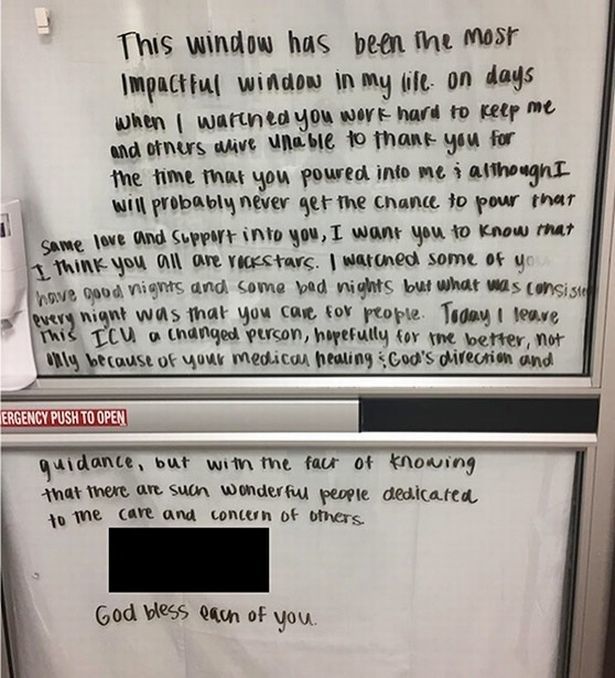 This window has been the most
Impactful window in my life. on days
when I watched you work hard to keep me
and others alive unable to thank you for
the time that you poured into me & although I
will probably never get the chance to pour that
same love and support into you, I want you to know that
I think you all are rockstars. I watched some of you
have good nights and some bad nights but what was consisten
every night was that you care for people. Today I leave
This ICU a changed person, hopefully for the better, not
only because of your medical healing & God's direction and
ERGENCY PUSH TO OPEN
guidance, but with the fact of knowing
that there are such wonderful people dedicated
to the care and concern of others.
God bless each of you.